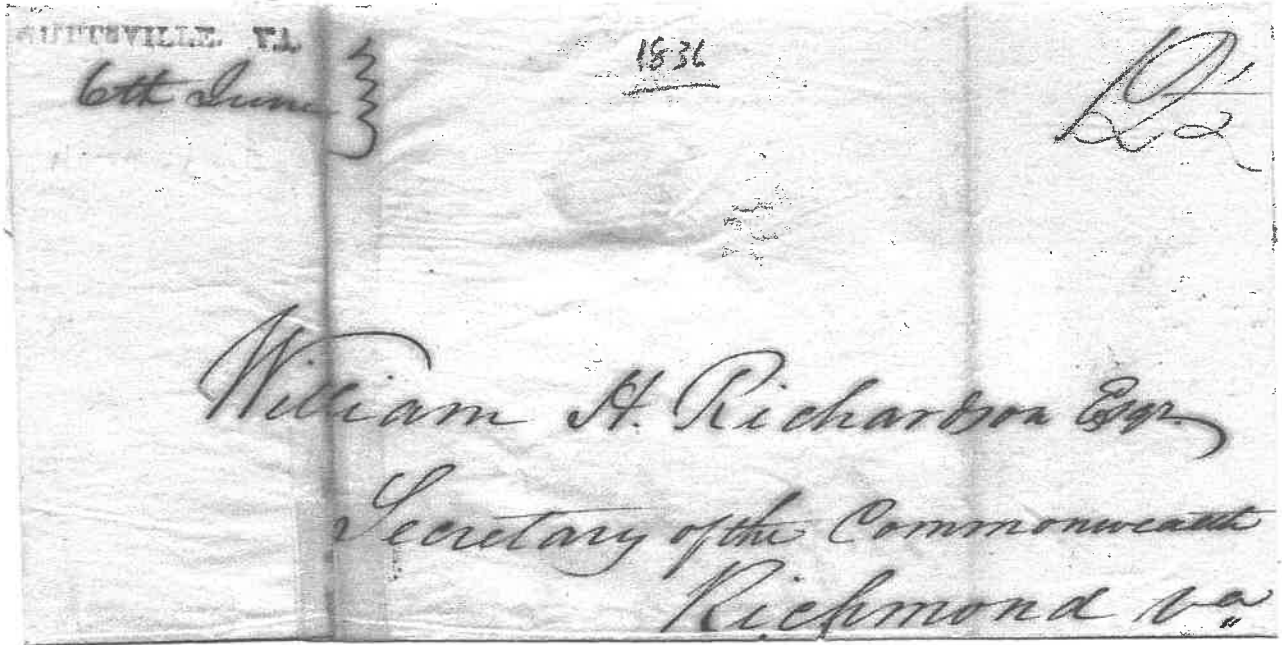 VA.
6th June
1836
William H. Richardson Esqr.
Secretary of the Commonwealth
Richmond Va